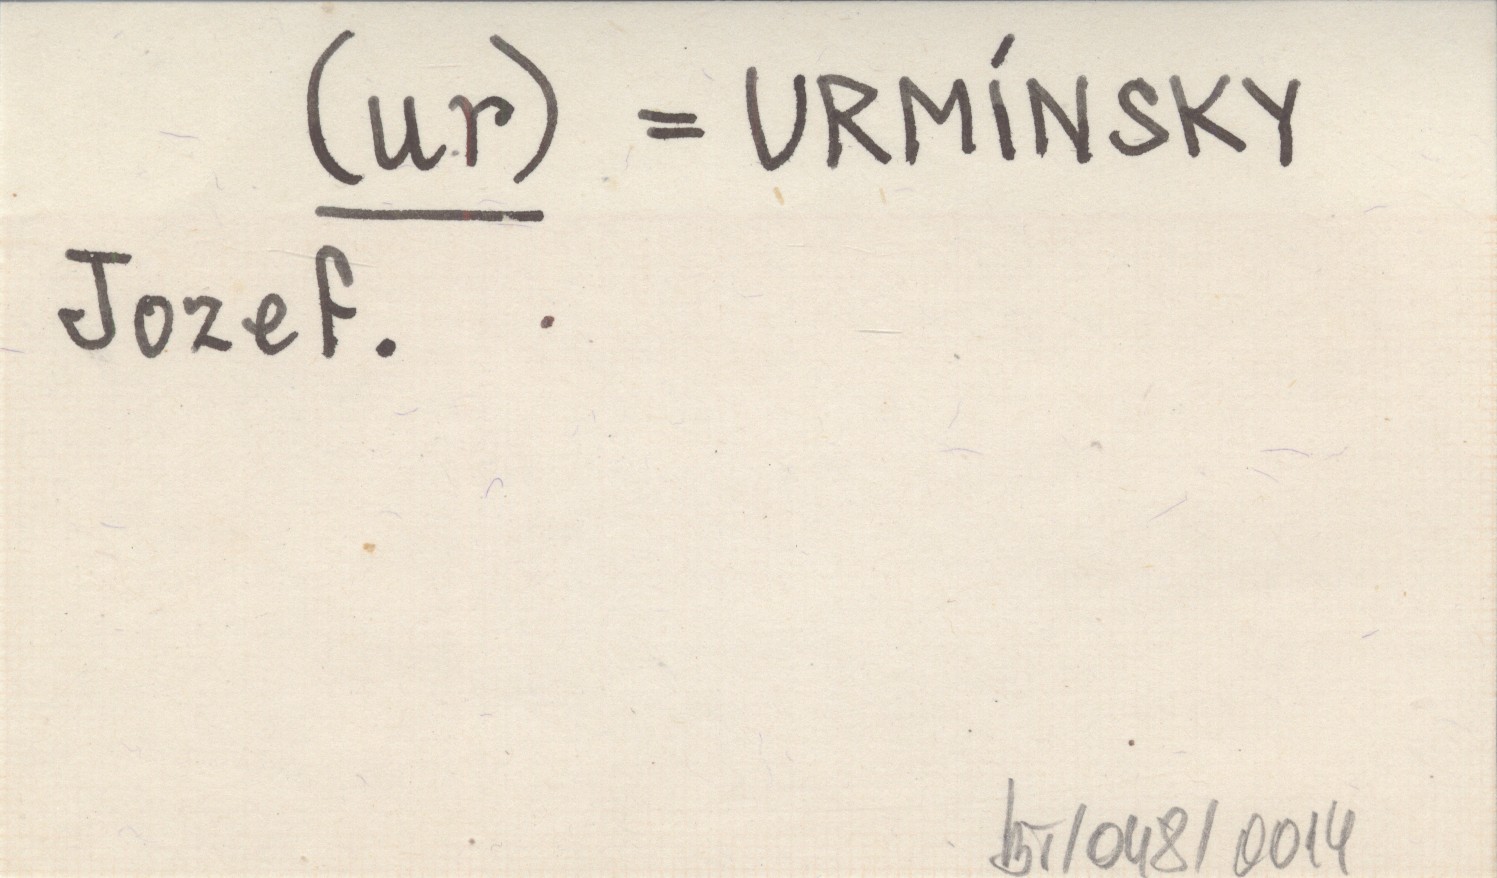 (ur) = URMÍNSKY
Jozef.
/048/0014